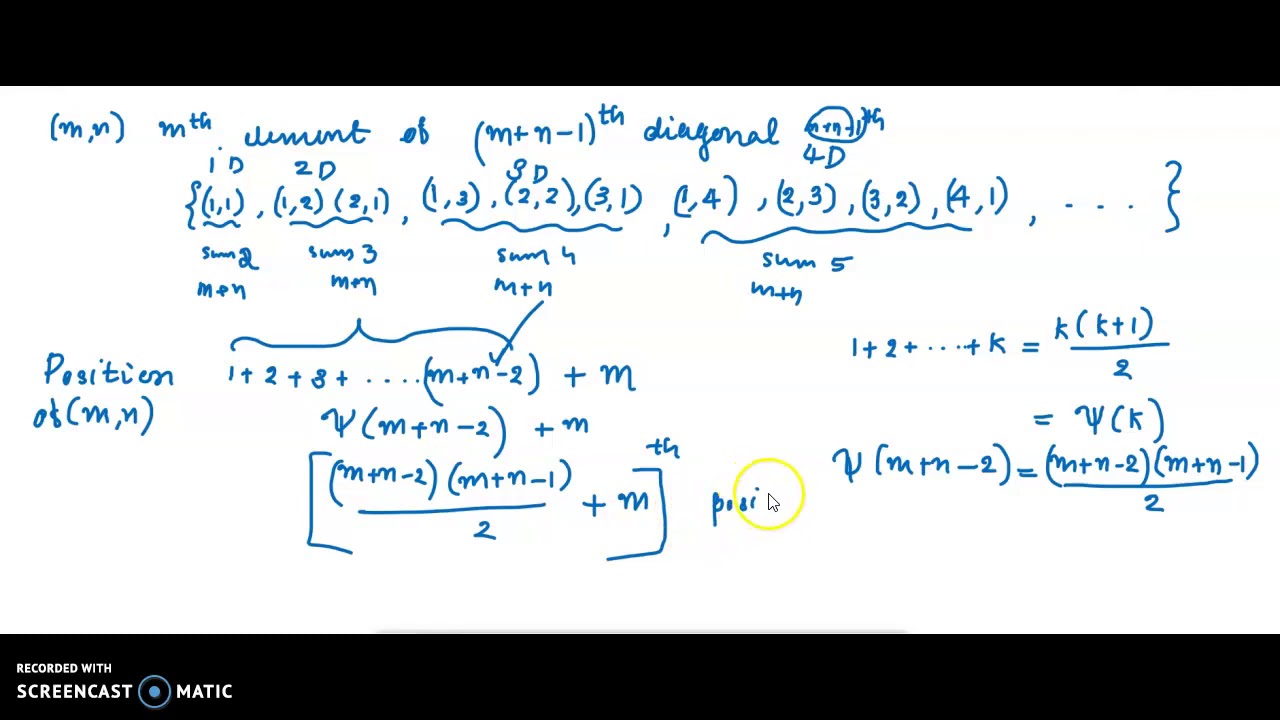 (m,n) mth element of (m+n-1)th diagonal (m+n-1)th
1D 2D 3D 4D
{(1,1), (1,2) (2,1), (1,3), (2,2), (3,1), (1,4), (2,3), (3,2), (4,1), . . . }
sum 2 sum 3 sum 4 sum 5
m+n m+n m+n m+n
1+2+....+k = k(k+1)/2
Position 1+2+3+ ....(m+n-2) + m
of (m,n) Ψ(m+n-2) + m
= Ψ(k)
[(m+n-2)(m+n-1)/2 + m]th posi
Ψ(m+n-2) = (m+n-2)(m+n-1)/2
RECORDED WITH
SCREENCAST MATIC